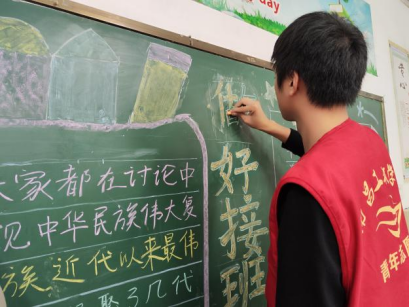 day
大家都在讨论中
见中华民族伟大复
族近代以来最伟
聚了几代
做
好
接
班
青年志愿